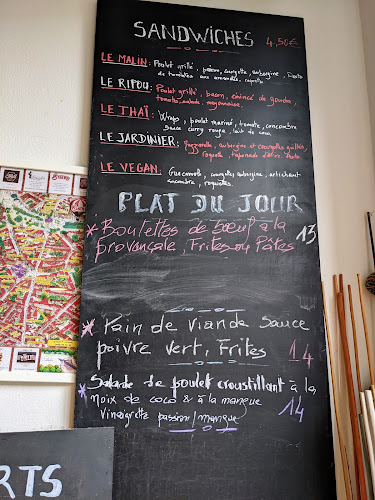 SANDWICHES 4,50€
LE MALIN: Poulet grillé, poivron, courgette, aubergine, Pesto
de tomates aux amandes, roquette
LE RIPOU: Poulet grillé, bacon, émincé de gouda,
tomates, salade, mayonnaise.
LE THAÏ: Wraps, poulet mariné, tomate, concombre
sauce curry rouge, lait de coco
LE JARDINIER: Mozzarella, aubergine et courgettes grillées,
roquette, tapenade d'olive, Pesto
LE VEGAN: Guacamole, courgettes, aubergine, artichaut
concombre, roquettes.
PLAT DU JOUR
*Boulettes de boeuf à la 13
provençale, Frites ou Pâtes
*Pain de viande sauce
poivre vert, Frites 14
*Salade de poulet croustillant à la
noix de coco & à la mangue 14
Vinaigrette passion/mangue
RTS